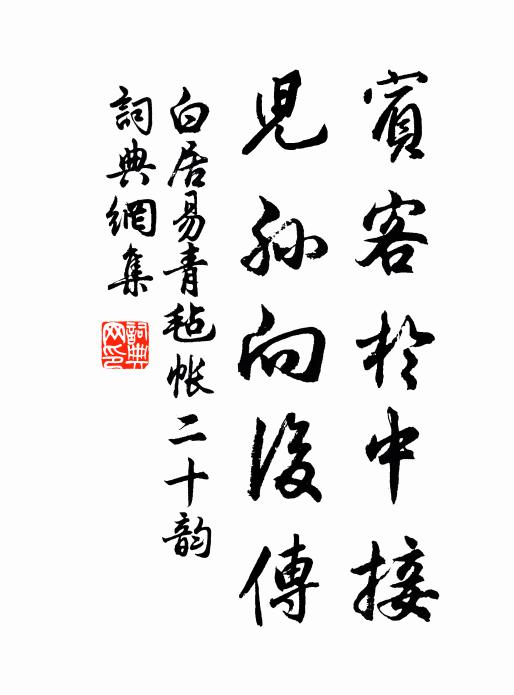 賓客於中接
兒孫向後傳
白居易青毡帐二十韵
詞典網集
詞典
网印